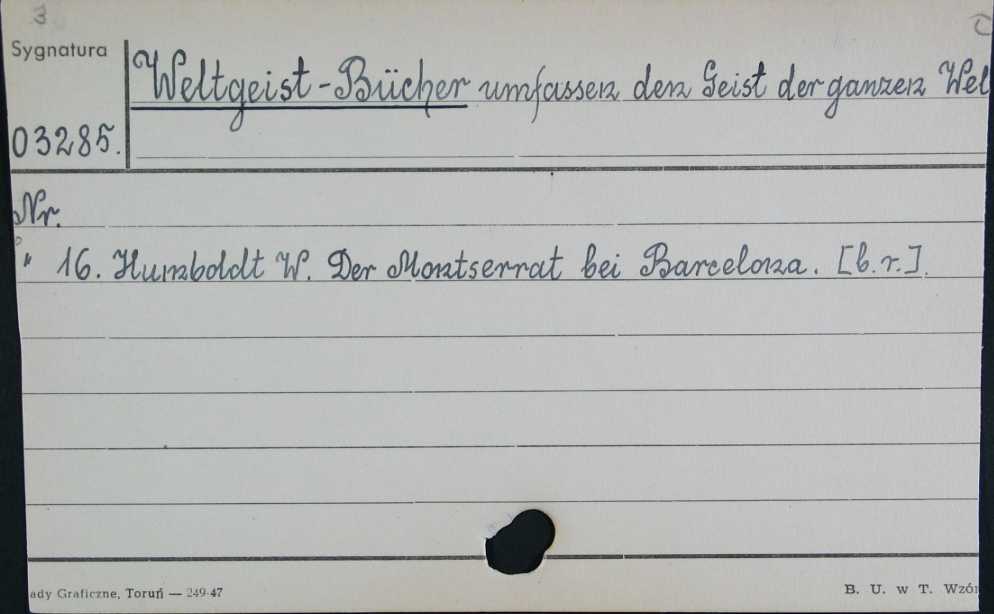 3
Sygnatura
Weltgeist-Bücher umfassen den Geist der ganzen Wel
03285.
Nr.
" 16. Humboldt W. Der Montserrat bei Barcelona. [b.r.].
ady Graficzne, Toruń — 249-47
B. U. w T. Wzór